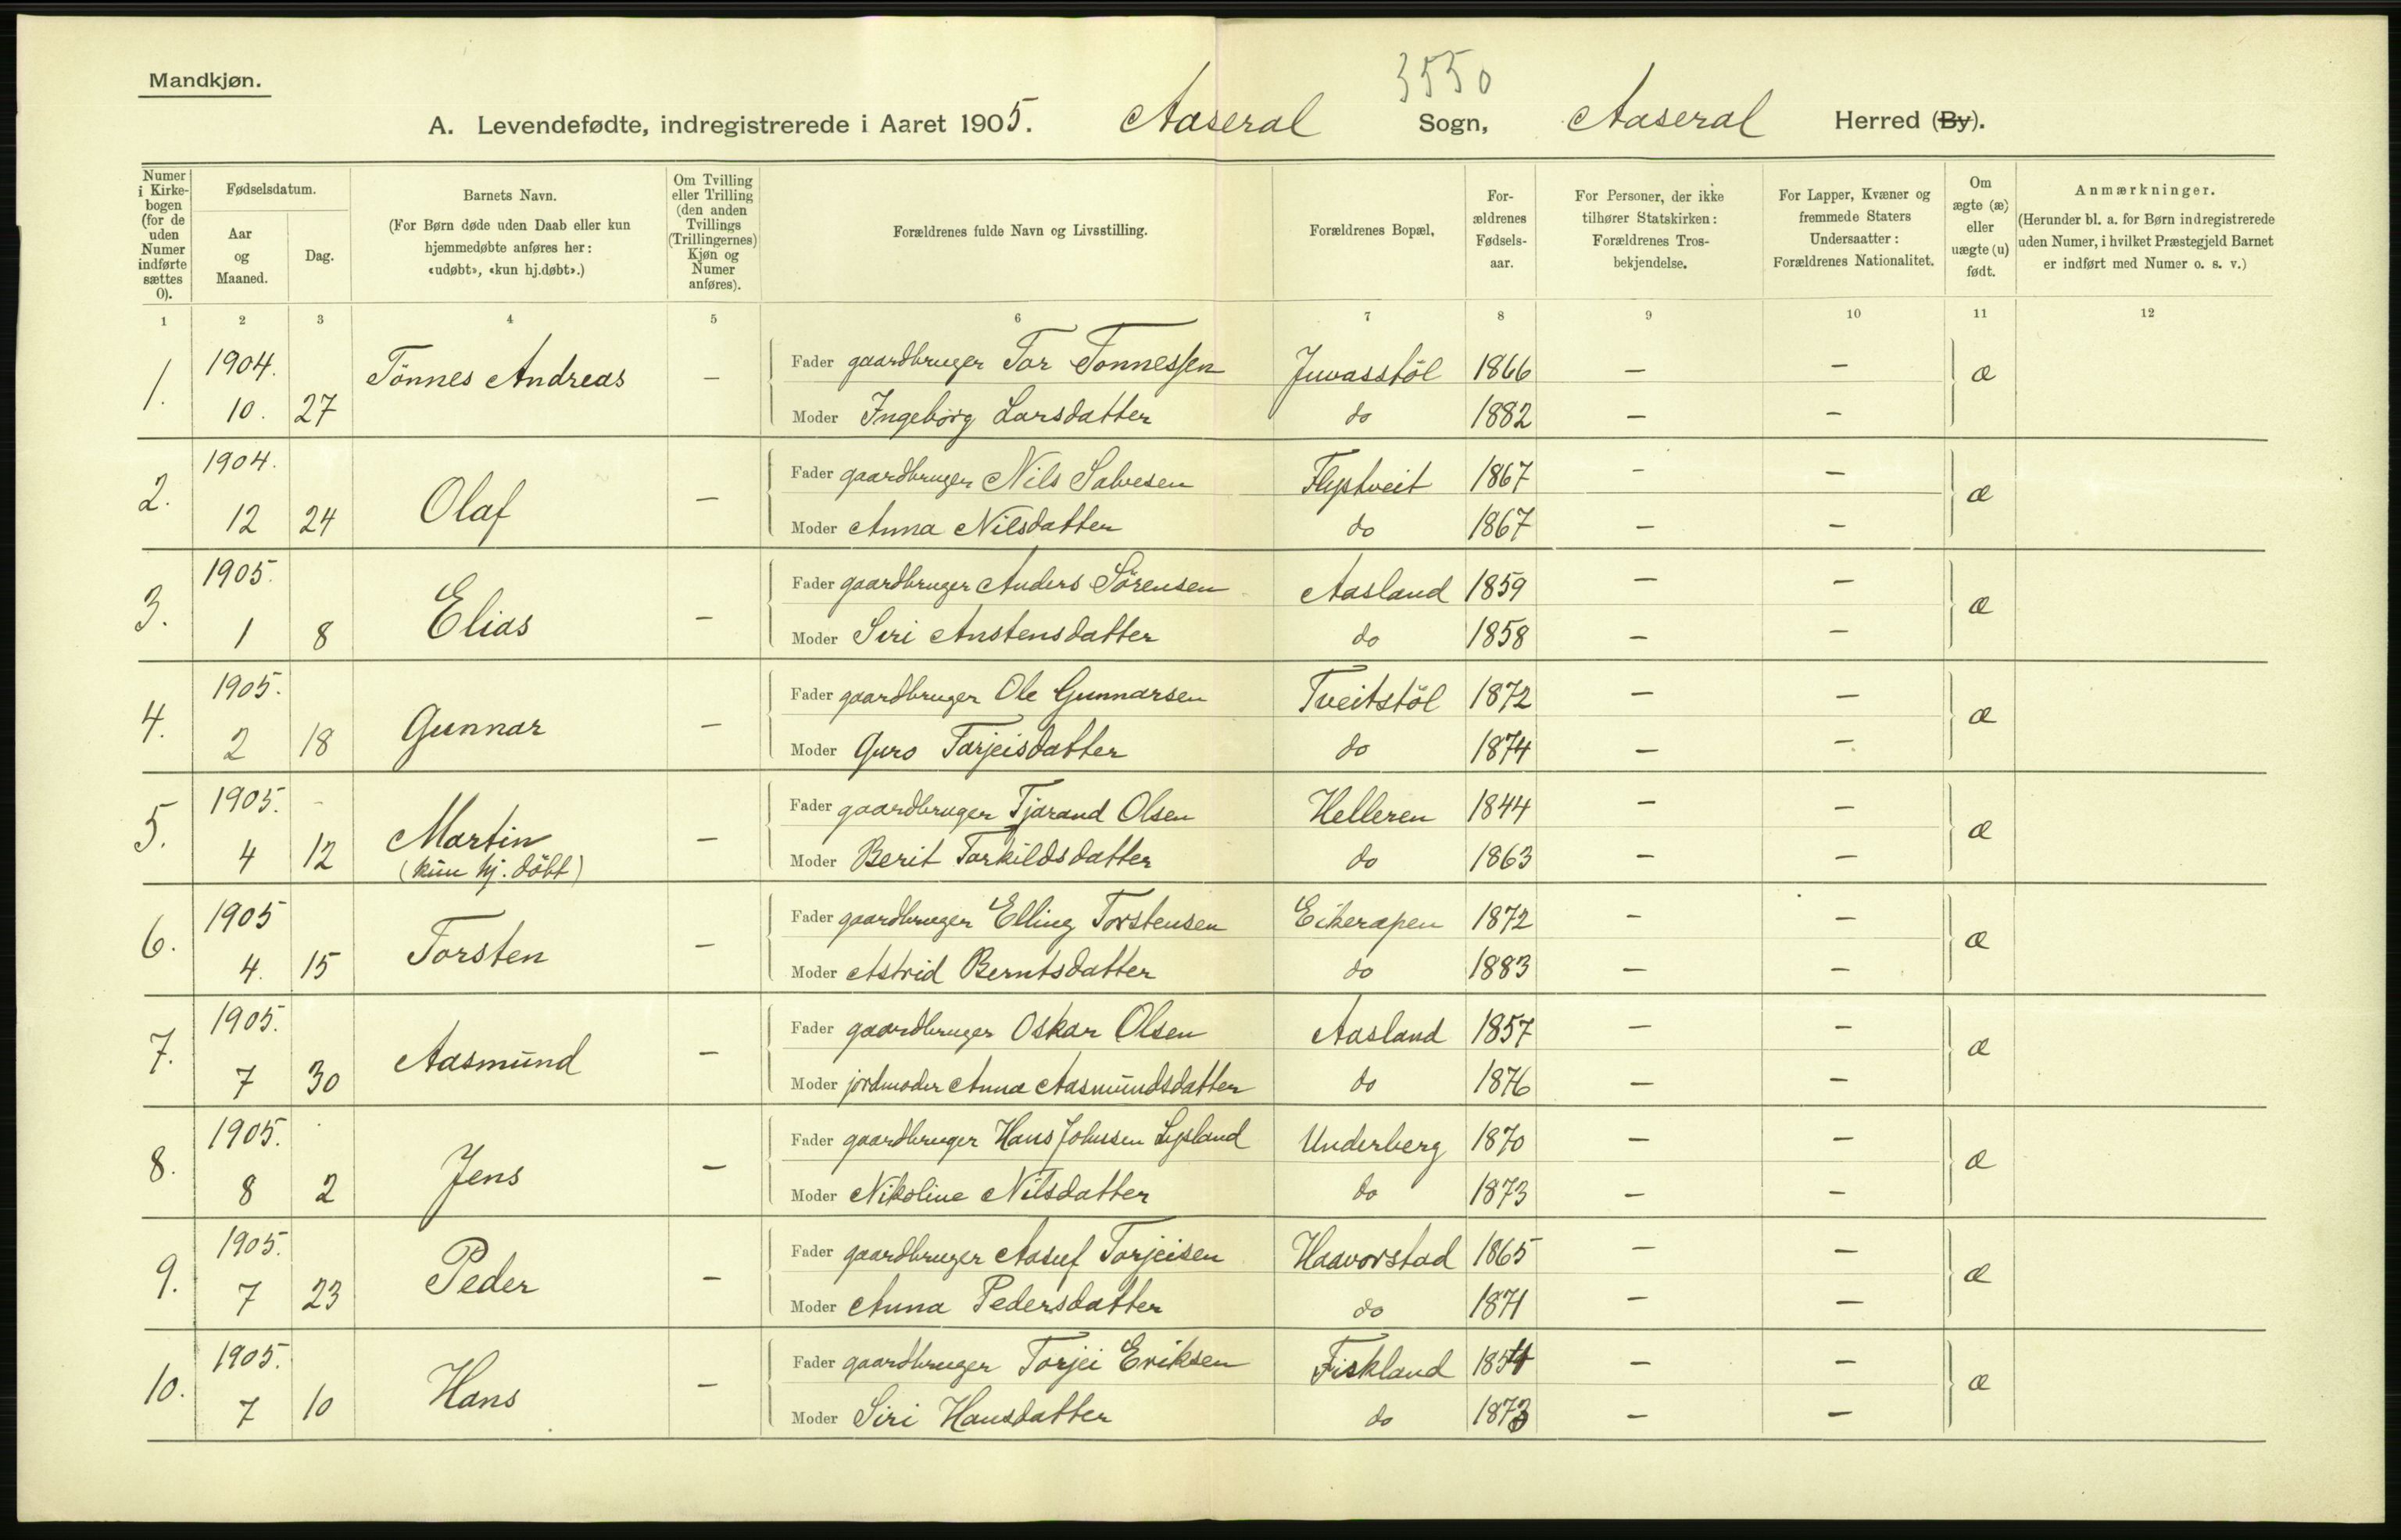 Mandkjøn.
3550
A. Levendefødte, indregistrerede i Aaret 1905. Aaseral Sogn, Aaseral Herred (By).
Numer i Kirkebogen (for de uden Numer indførte sættes 0).
Fødselsdatum.
Aar og Maaned.
Dag.
Barnets Navn.
(For Børn døde uden Daab eller kun hjemmedøbte anføres her: «udøbt», «kun hj.døbt».)
Om Tvilling eller Trilling (den anden Tvillings (Trillingernes) Kjøn og Numer anføres).
Forældrenes fulde Navn og Livsstilling.
Forældrenes Bopæl,
Forældrenes Fødselsaar.
For Personer, der ikke tilhører Statskirken: Forældrenes Trosbekjendelse.
For Lapper, Kvæner og fremmede Staters Undersaatter: Forældrenes Nationalitet.
Om ægte (æ) eller uægte (u) født.
Anmærkninger.
(Herunder bl. a. for Børn indregistrerede uden Numer, i hvilket Præstegjeld Barnet er indført med Numer o. s. v.)
1 2 3 4 5 6 7 8 9 10 11 12
1. 1904. 10. 27 Tönnes Andreas – Fader gaardbruger Tor Tonnessen Juvasstöl 1866 – – æ
Moder Ingeborg Larsdatter do 1882 – –
2. 1904. 12 24 Olaf – Fader gaardbruger Nils Salvesen Flystveit 1867 – – æ
Moder Anna Nilsdatter do 1867 – –
3. 1905. 1 8 Elias – Fader gaardbruger Anders Sörensen Aasland 1859 – – æ
Moder Siri Anstensdatter do 1858 – –
4. 1905. 2 18 Gunnar – Fader gaardbruger Ole Gunnarsen Tveitstöl 1872 – – æ
Moder Guro Tarjeisdatter do 1874 – –
5. 1905. 4 12 Martin (kun hj. döbt) – Fader gaardbruger Tjarand Olsen Helleren 1844 – – æ
Moder Berit Tarkildsdatter do 1863 – –
6. 1905 4. 15 Torsten – Fader gaardbruger Elling Torstensen Eikerapen 1872 – – æ
Moder Astrid Berntsdatter do 1883 – –
7. 1905. 7 30 Aasmund – Fader gaardbruger Oskar Olsen Aasland 1857 – – æ
Moder jordmoder Anna Aasmundsdatter do 1876 – –
8. 1905. 8 2 Jens – Fader gaardbruger Hans Johnsen Lysland Underberg 1870 – – æ
Moder Nikoline Nilsdatter do 1873 – –
9. 1905. 7 23 Peder – Fader gaardbruger Aasuf Torjeisen Haavorstad 1865 – – æ
Moder Anna Pedersdatter do 1871 – –
10. 1905. 7 10 Hans – Fader gaardbruger Torjei Eriksen Fiskland 1854 – – æ
Moder Siri Hansdatter do 1873 – –